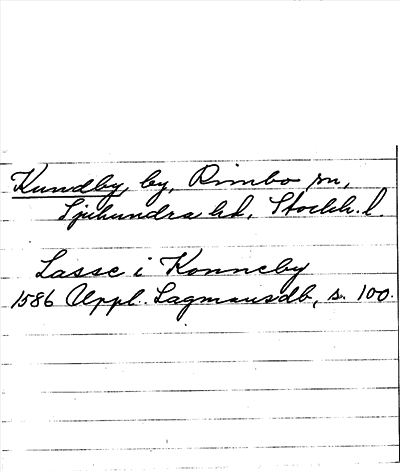 Kundby, by, Rimbo sn,
Sjuhundra hd, Stockh. l.
Lasse i Konneby
1586 Uppl. Lagmansdb, s. 100.